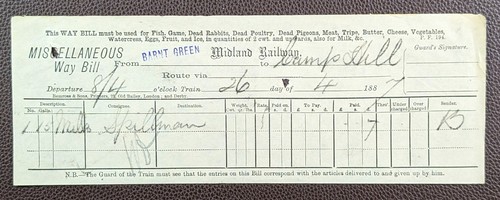 This WAY BILL must be used for Fish, Game, Dead Rabbits, Dead Poultry, Dead Pigeons, Meat, Tripe, Butter, Cheese, Vegetables,
Watercress, Eggs, Fruit, and Ice, in quantities of 2 cwt. and upwards, also for Milk, &c.
P. F. 194.
MISCELLANEOUS
Way Bill
From BARNT GREEN
Midland Railway.
to Camp Hill
Guard's Signature.
Route via
Departure 8/4 o'clock Train 26 day of 4 1887
Bemrose & Sons, Printers, 23, Old Bailey, London; and Derby.
Description. Consignee. Destination. Weight. Rate Paid on. To Pay. Under-charged Over charged Sender.
No. Galls. Cwt. qr. lbs. £ s. d. £ s. d.
Milk Spillman 7 B
N.B.—The Guard of the Train must see that the entries on this Bill correspond with the articles delivered to and given up by him.